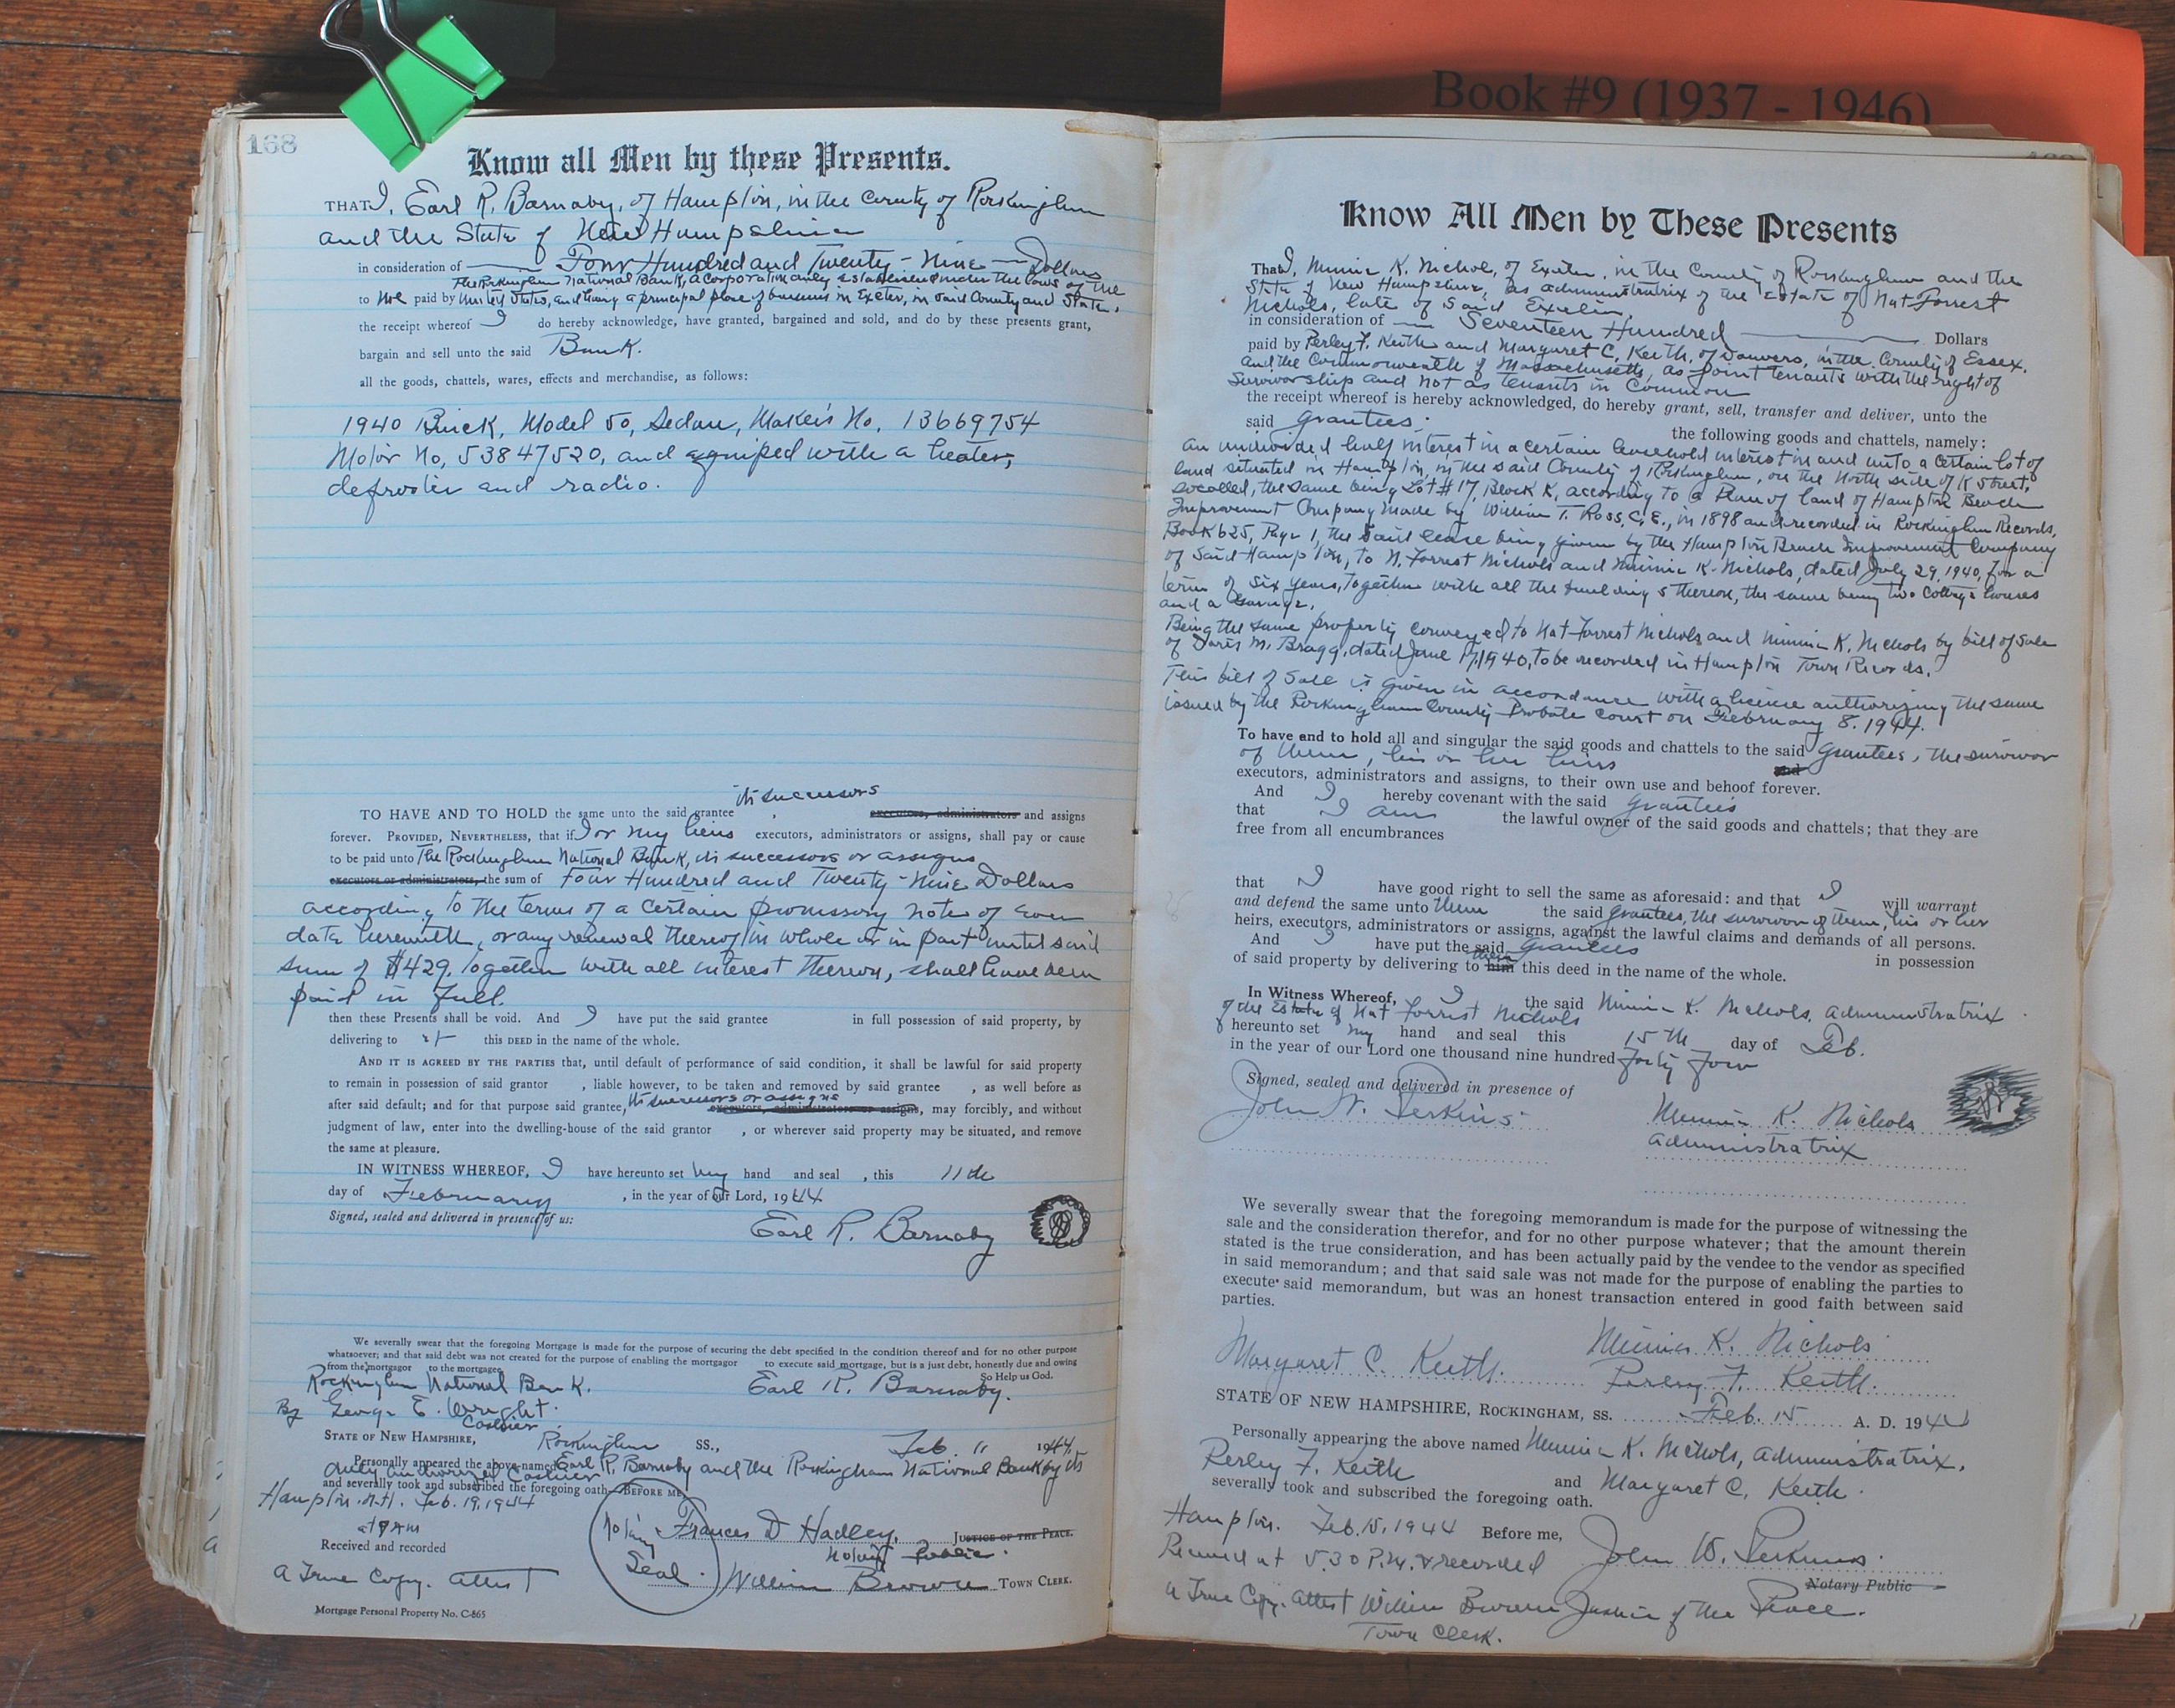 Book #9 (1937 - 1946)
168
Know all Men by these Presents.
THAT I, Earl R. Barnaby, of Hampton, in the County of Rockingham
and the State of New Hampshire
in consideration of Four Hundred and Twenty-Nine Dollars
The Rockingham National Bank, a corporation duly established under the laws of the
to me paid by United States, and having a principal place of business in Exeter, in said County and State,
the receipt whereof I do hereby acknowledge, have granted, bargained and sold, and do by these presents grant,
bargain and sell unto the said Bank.
all the goods, chattels, wares, effects and merchandise, as follows:
1940 Buick, Model 50, Sedan, Maker's No. 13669754
Motor No, 53847520, and equiped with a heater,
defroster and radio.
its successors
TO HAVE AND TO HOLD the same unto the said grantee , executors, administrators and assigns
forever. PROVIDED, NEVERTHELESS, that if I or my heirs executors, administrators or assigns, shall pay or cause
to be paid unto The Rockingham National Bank, its successors or assigns
executors or administrators, the sum of Four Hundred and Twenty-Nine Dollars
according to the terms of a certain promissory note of even
date herewith, or any renewal thereof in whole or in part until said
sum of $429. together with all interest thereon, shall have been
paid in full.
then these Presents shall be void. And I have put the said grantee in full possession of said property, by
delivering to it this DEED in the name of the whole.
AND IT IS AGREED BY THE PARTIES that, until default of performance of said condition, it shall be lawful for said property
to remain in possession of said grantor , liable however, to be taken and removed by said grantee , as well before as
after said default; and for that purpose said grantee, its successors or assigns executors, administrators or assigns, may forcibly, and without
judgment of law, enter into the dwelling-house of the said grantor , or wherever said property may be situated, and remove
the same at pleasure.
IN WITNESS WHEREOF, I have hereunto set my hand and seal , this 11th
day of February , in the year of our Lord, 1944
Signed, sealed and delivered in presence of us:
Earl R. Barnaby
We severally swear that the foregoing Mortgage is made for the purpose of securing the debt specified in the condition thereof and for no other purpose
whatsoever; and that said debt was not created for the purpose of enabling the mortgagor to execute said mortgage, but is a just debt, honestly due and owing
from the mortgagor to the mortgagee. So Help us God.
Rockingham National Bank. Earl R. Barnaby.
By George E. Wright.
Cashier
STATE OF NEW HAMPSHIRE, Rockingham SS., Feb. 11 1944.
Personally appeared the above-named Earl R. Barnaby and the Rockingham National Bank by its
duly authorized Cashier
and severally took and subscribed the foregoing oath—BEFORE ME,
Hampton. N.H. Feb. 19, 1944
at 9 AM
Received and recorded
Notary Seal. Frances D Hadley. JUSTICE OF THE PEACE.
Notary Public.
A True Copy. Attest William Brown TOWN CLERK.
Mortgage Personal Property No. C-865
Know All Men by These Presents
That I, Minnie K. Nichol, of Exeter, in the County of Rockingham and the
State of New Hampshire, as administratrix of the estate of Nat Forrest
Nichols, late of said Exeter,
in consideration of Seventeen Hundred Dollars
paid by Perley F. Keith and Margaret C. Keith, of Danvers, in the County of Essex,
and the Commonwealth of Massachusetts, as joint tenants with the right of
survivorship and not as tenants in common
the receipt whereof is hereby acknowledged, do hereby grant, sell, transfer and deliver, unto the
said grantees. the following goods and chattels, namely:
An undivided half interest in a certain leasehold interest in and unto a certain lot of
land situated in Hampton, in the said County of Rockingham, on the North side of K Street,
socalled, the same being Lot #17, Block K, according to a Plan of land of Hampton Beach
Improvement Company made by William T. Ross, C.E., in 1898 and recorded in Rockingham Records,
Book 625, Page 1, the said lease being given by the Hampton Beach Improvement Company
of said Hampton, to N. Forrest Nichols and Minnie K. Nichols, dated July 29, 1940, for a
term of six years, together with all the buildings thereon, the same being two cottage houses
and a garage.
Being the same property conveyed to Nat Forrest Nichols and Minnie K. Nichols by bill of sale
of Doris M. Bragg, dated June 17, 1940, to be recorded in Hampton Town Records.
This bill of sale is given in accordance with a license authorizing the same
issued by the Rockingham County Probate Court on February 8. 1944.
To have and to hold all and singular the said goods and chattels to the said grantees, the survivor
of them, his or her heirs and
executors, administrators and assigns, to their own use and behoof forever.
And I hereby covenant with the said grantees
that I am the lawful owner of the said goods and chattels; that they are
free from all encumbrances
that I have good right to sell the same as aforesaid: and that I will warrant
and defend the same unto them the said grantees, the survivor of them, his or her
heirs, executors, administrators or assigns, against the lawful claims and demands of all persons.
And I have put the said grantees in possession
of said property by delivering to him them this deed in the name of the whole.
In Witness Whereof, I the said Minnie K. Nichols, administratrix
of the Estate of Nat Forrest Nichols
hereunto set my hand and seal this 15th day of Feb.
in the year of our Lord one thousand nine hundred forty four
Signed, sealed and delivered in presence of
John W. Perkins Minnie K. Nichols
administratrix
We severally swear that the foregoing memorandum is made for the purpose of witnessing the
sale and the consideration therefor, and for no other purpose whatever; that the amount therein
stated is the true consideration, and has been actually paid by the vendee to the vendor as specified
in said memorandum; and that said sale was not made for the purpose of enabling the parties to
execute said memorandum, but was an honest transaction entered in good faith between said
parties.
Minnie K. Nichols
Margaret C. Keith. Perley F. Keith.
STATE OF NEW HAMPSHIRE, ROCKINGHAM, SS. Feb. 15 A. D. 1944
Personally appearing the above named Minnie K. Nichols, administratrix,
Perley F. Keith and Margaret C. Keith.
severally took and subscribed the foregoing oath.
Hampton. Feb. 15, 1944 Before me,
Received at 5.30 P.M. & recorded John W. Perkins.
Notary Public
A True Copy. Attest William Brown Justice of the Peace.
Town Clerk.